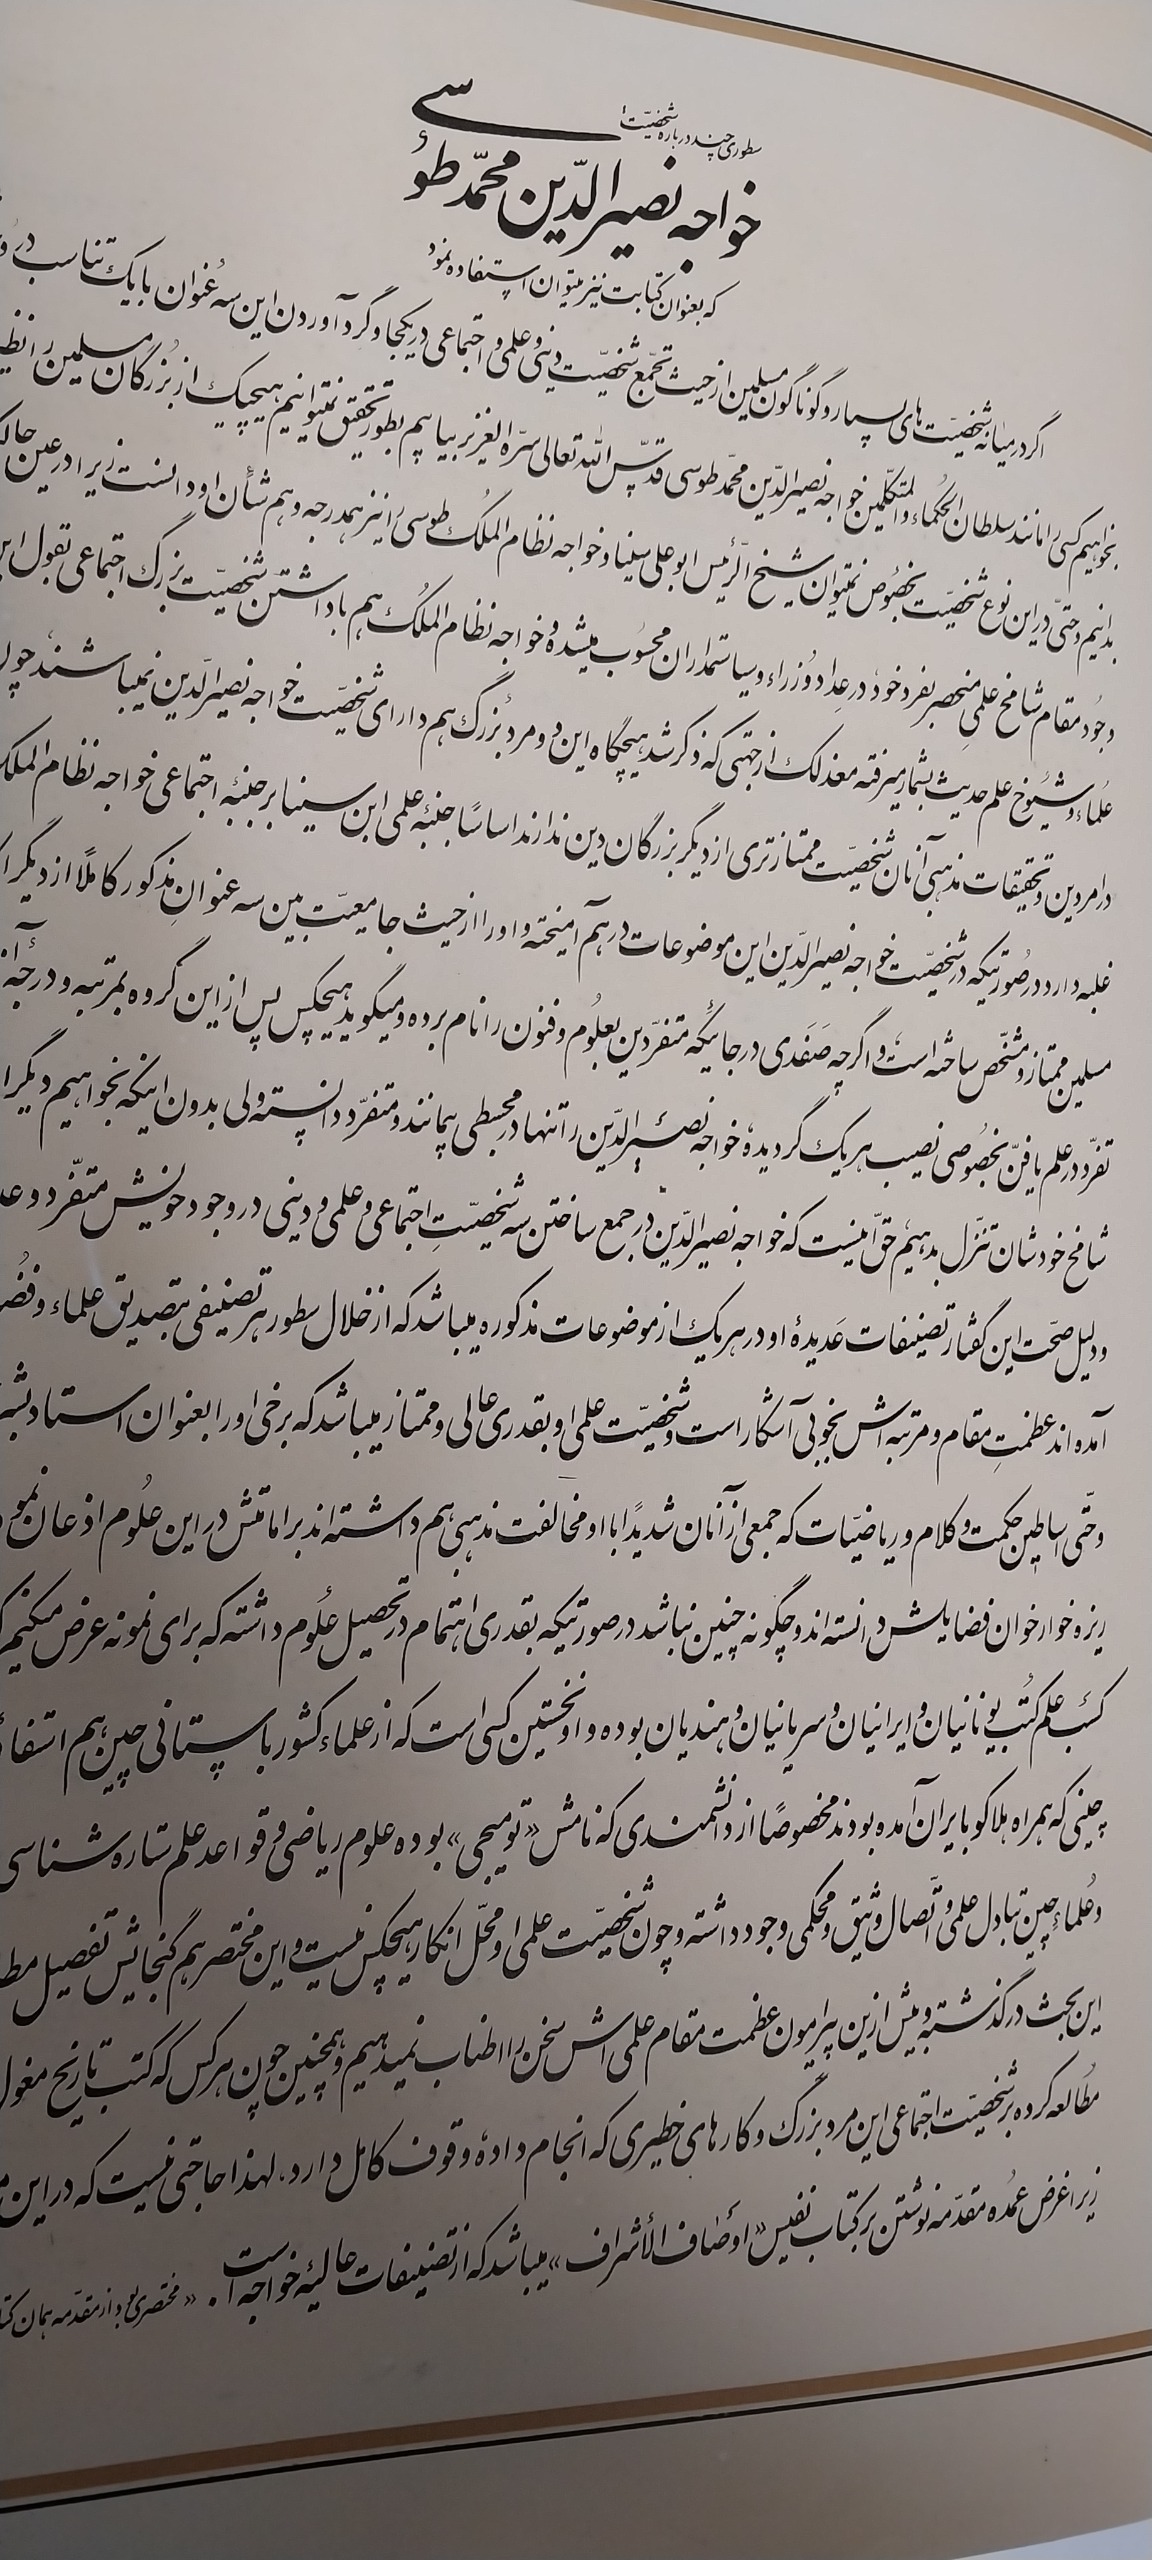 سطوری چند درباره شخصیّت
خواجه نصیرالدّین محمّد طوسی
که بعنوان کتابت نیز میتوان استفاده نمود
اگر در میانه شخصیّت های بسیار و گوناگون مسلمین از حیث تجمّع شخصیّت دینی و علمی و اجتماعی در یکجا و گرد آوردن این سه عُنوان با یک تناسب در
بخواهیم کسی را مانند سلطان الحکماء و المتکلّمین خواجه نصیرالدّین محمّد طوسی قدّس الله تعالی سرّه العزیز بیابیم بطور تحقیق نمیتوانیم هیچیک از بُزرگان مسلمین را نظیر
بدانیم و حتّی در این نوع شخصیّت بخصُوص نمیتوان شیخ الرّئیس ابوعلی سینا و خواجه نظام المُلک طوسی را نیز همدرجه و هم شأن او دانست زیرا در عین حالیکه
وجُود مقام شامخ علمیِ منحصر بفرد خود در عِداد وُزراء و سیاستمداران محسُوب میشده و خواجه نظام المُلک هم با داشتن شخصیّت بزرگ اجتماعی بقول
عُلماء و شیُوخ علم حدیث بشمار میرفته معذلک از جهتی که ذکر شد هیچگاه این دو مرد بُزرگ هم دارای شخصیّت خواجه نصیرالدّین نمیباشند چون
در امر دین و تحقیقات مذهبی آنان شخصیّت ممتازتری از دیگر بزرگان دین ندارند اساسًا جنبُه علمی ابن سینا بر جنبُه اجتماعی خواجه نظام الملک
غلبه دارد در صُورتیکه در شخصیّت خواجه نصیرالدّین این موضوعات درهم آمیخته و او را از حیث جامعیّت بین سه عنوانِ مذکور کاملًا از دیگر
مسلمین ممتاز و مشخّص ساخته است، و اگرچه صَفَدی در جائیکه متفرّدین بعلُوم و فنون را نام برده و میگوید هیچکس پس از این گروه بمرتبه و درجُه
تفرّد در علم یا فنّ بخصُوصی نصیب هر یک گردیده، خواجه نصیرالدّین را تنها در مجسطی بیمانند و متفرّد دانسته ولی بدون اینکه بخواهیم دیگر
شامخ خودشان تنزّل بدهیم حقّ اینست که خواجه نصیرالدّین در جمع ساختن سه شخصیّتِ اجتماعی و علمی و دینی در وجود خویش متفّرد و
و دلیل صحّت این گفتار تصنیفات عَدیدۀ او در هر یک از موضوعات مذکوره میباشد که از خلال سطور هر تصنیفی بتصدیق علماء و
آمده اند عظمتِ مقام و مرتبه اش بخوبی آشکار است و شخصیّت علمی او بقدری عالی و ممتاز میباشد که برخی او را بعنوان استاد
و حتّی اساطین حکمت و کلام و ریاضیّات که جمعی از آنان شدیدًا با او مخالفت مذهبی هم داشته اند بر امامتش در این علُوم اذعان
ریزه خوار خوان فضایلش دانسته اند و چگونه چنین نباشد در صورتیکه بقدری اهتمام در تحصیل علُوم داشته که برای نمونه عرض میکنیم
کسب علم کتُب یونانیان و ایرانیان و سریانیان و هندیان بوده و او نخستین کسی است که از علماء کشور باستانی چین هم
چینی که همراه هلاکو بایران آمده بودند مخصوصًا از دانشمندی که نامش «تومیجی» بوده علوم ریاضی و قواعد علم ستاره شناسی
و عُلماء چین تبادل علمی و اتّصال وثیق و محکمی وجود داشته و چون شخصیّت علمی او محلّ انکار هیچکس نیست و این مختصر هم گنجایش تفصیل
این بحث در گذشته و بیش ازین پیرامون عظمت مقام علمی اش سخن را اطناب نمیدهیم و همچنین چون هرکس که کتب تاریخ مغول
مطُالعه کرده بر شخصیّت اجتماعی این مرد بزرگ و کارهای خطیری که انجام داده وقوف کامل دارد، لهذا حاجتی نیست که در این
زیرا غرض عمُده مقدّمه نوشتن بر کتاب نفیس «اوصاف الأشراف» میباشد که از تصنیفات عالیُه خواجه است. «مختصری بود از مقدّمه همان